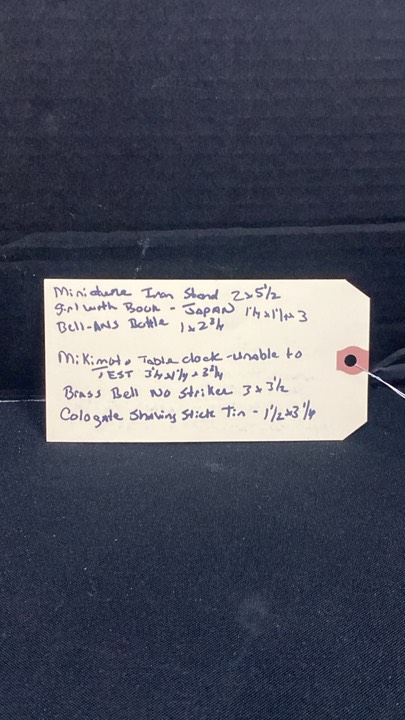 Miniature Iron Stand 2x5 1/2
Girl with Book - JAPAN 1 1/4 x 1 1/4 x 3
Bell-Ans Bottle 1 x 2 3/4
Mikimoto Table clock - unable to
TEST 3 1/4 x 1 1/4 x 3 3/4
Brass Bell No Striker 3 x 3 1/2
Cologate Shaving Stick Tin - 1 1/2 x 3 1/4